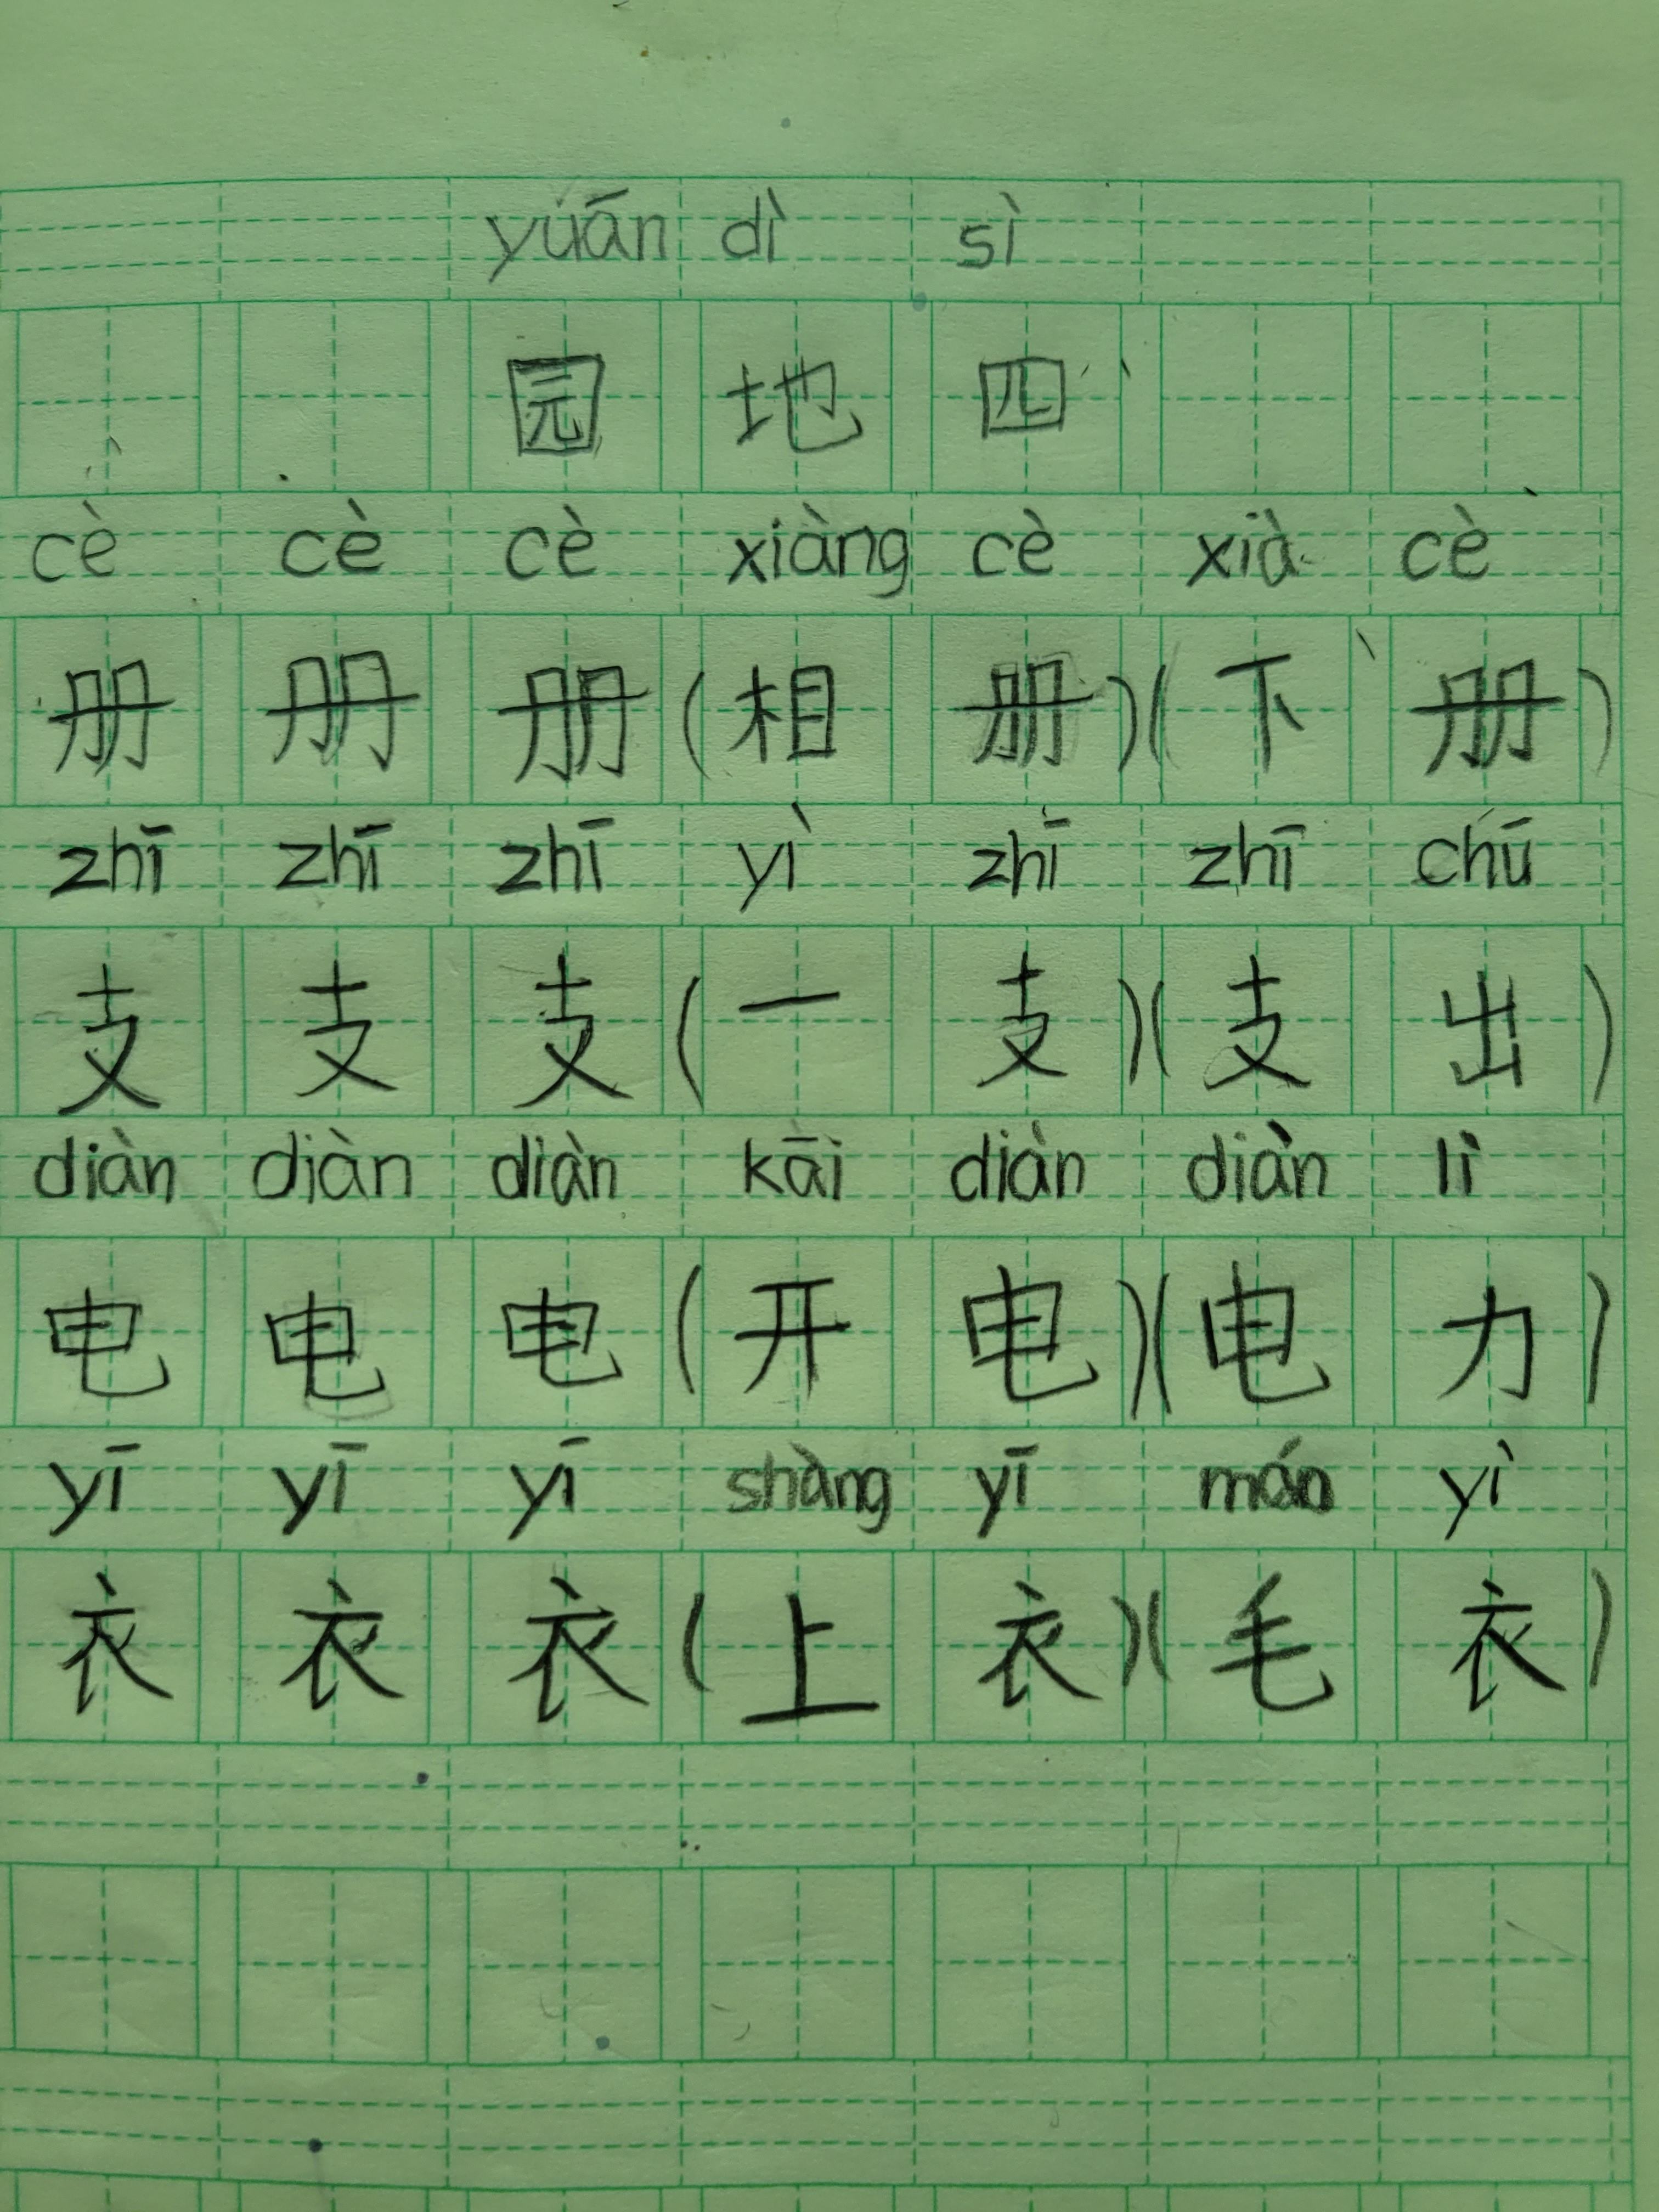 yuán dì sì
园 地 四
cè cè cè xiàng cè xià cè
册 册 册 (相 册)(下 册)
zhī zhī zhī yì zhī zhī chū
支 支 支 (一 支)(支 出)
diàn diàn diàn kāi diàn diàn lì
电 电 电 (开 电)(电 力)
yī yī yī shàng yī máo yì
衣 衣 衣 (上 衣)(毛 衣)